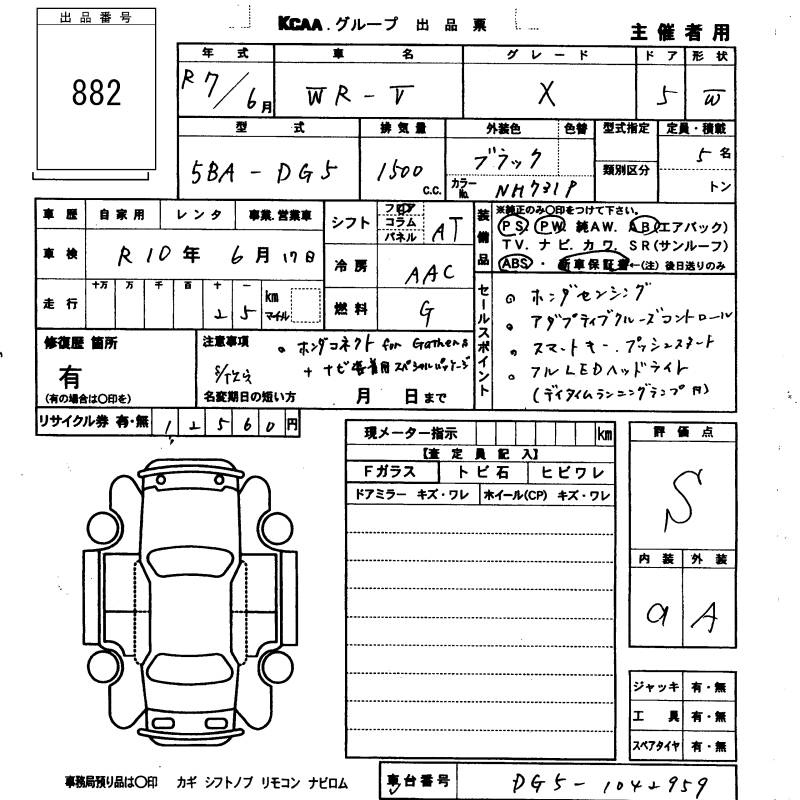 出品番号
882
KCAA.グループ 出品票
主催者用
年式 車名 グレード ドア 形状
R7/6月 WR-V X 5 W
型式 排気量 外装色 色替 型式指定 定員・積載
5BA-DG5 1500 c.c. ブラック 5名
カラーNo. NH731P 類別区分 トン
車歴 自家用 レンタ 事業.営業車
シフト フロア コラム パネル AT
装備品 ※純正のみ〇印をつけて下さい。
PS. PW. 純AW. AB(エアバック)
TV. ナビ. カワ. SR(サンルーフ)
ABS・新車保証書←(注) 後日送りのみ
車検 R10年 6月17日
冷房 AAC
走行 十万 万 千 百 十 一 km マイル
25
燃料 G
セールスポイント
○ホンダセンシング
○アダプティブクルーズコントロール
○スマートキー.プッシュスタート
○フルLEDヘッドライト
(デイタイムランニングランプ付)
修復歴 箇所
有
(有の場合は〇印を)
注意事項 ○ホンダコネクト for Gathers
+ナビ装着用スペシャルパッケージ
名変期日の短い方 月 日まで
リサイクル券 有・無 12560円
現メーター指示 km
【査定員記入】
Fガラス トビ石 ヒビワレ
ドアミラー キズ・ワレ ホイール(CP) キズ・ワレ
評価点
S
内装 外装
a A
ジャッキ 有・無
工具 有・無
スペアタイヤ 有・無
事務局預り品は〇印 カギ シフトノブ リモコン ナビロム
車台番号 DG5-1042959